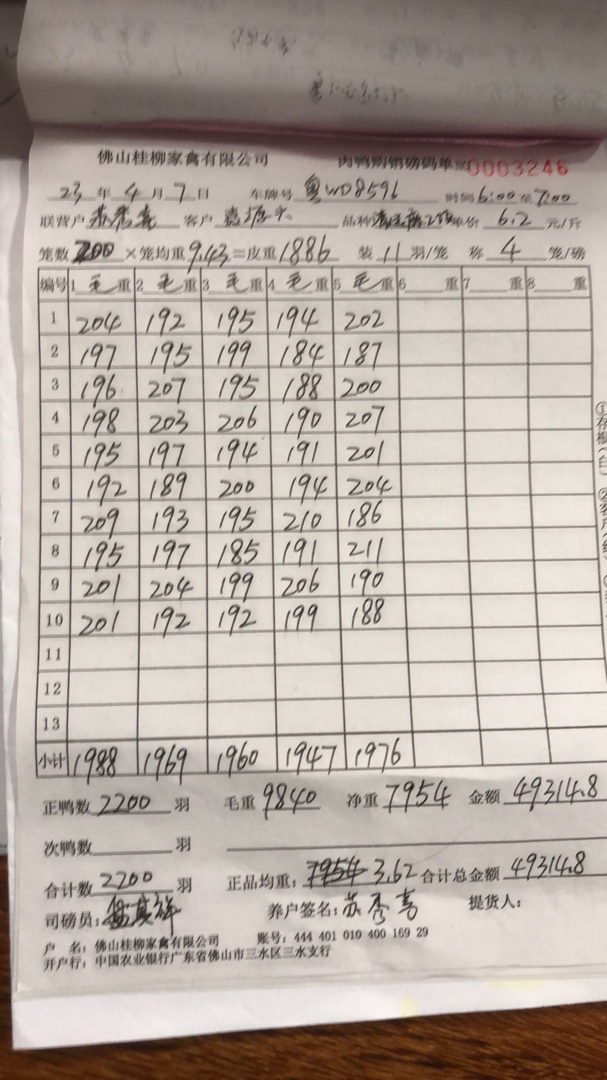 佛山桂柳家禽有限公司 肉鸭购销磅码单 0003246
23年4月7日 车牌号 粤WD8596 时间6:00至7:00
联营户 苏秀喜 客户 品种 单价 6.2 元/斤
笼数 200 ×笼均重9.43=皮重1886 装11羽/笼 称4笼/磅
编号 1毛重 2毛重 3毛重 4毛重 5毛重 6重 7重 8重
1 204 192 195 194 202
2 197 195 199 184 187
3 196 207 195 188 200
4 198 203 206 190 207
5 195 197 194 191 201
6 192 189 200 194 204
7 209 193 195 210 186
8 195 197 185 191 211
9 201 204 199 206 190
10 201 192 192 199 188
11
12
13
小计 1988 1969 1960 1947 1976
正鸭数 2200 羽 毛重 9840 净重 7954 金额 49314.8
次鸭数 羽
合计数 2200 羽 正品均重: 7954 3.62 合计总金额 49314.8
司磅员: 养户签名: 苏秀喜 提货人:
户 名: 佛山桂柳家禽有限公司 账号: 444 401 010 400 169 29
开户行: 中国农业银行广东省佛山市三水区三水支行
①存根(白)